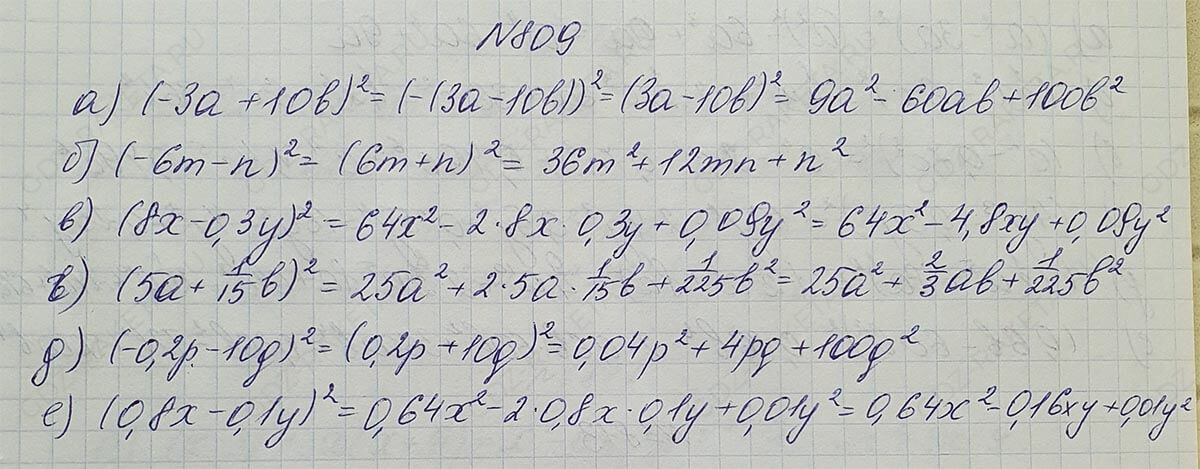 №809
а) (-3a+10b)²=(-(3a-10b))²=(3a-10b)²= 9a²-60ab+100b²
б) (-6m-n)²= (6m+n)²= 36m²+12mn+n²
в) (8x-0,3y)²=64x²-2·8x·0,3y+0,09y²=64x²-4,8xy+0,09y²
г) (5a+1/15b)²=25a²+2·5a·1/15b+1/225b²=25a²+2/3ab+1/225b²
д) (-0,2p-10q)²=(0,2p+10q)²=0,04p²+4pq+100q²
е) (0,8x-0,1y)²=0,64x²-2·0,8x·0,1y+0,01y²=0,64x²-0,16xy+0,01y²